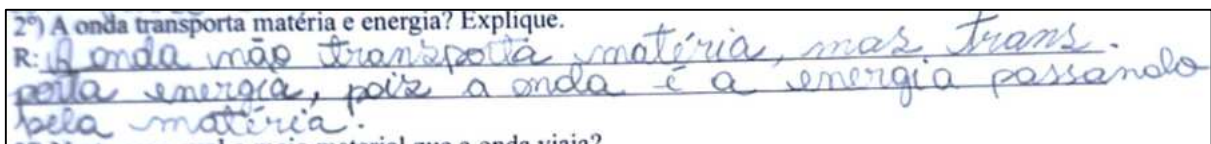 2º) A onda transporta matéria e energia? Explique.
R: A onda não transporta matéria, mas trans-
porta energia, pois a onda é a energia passando
pela matéria.
que a onda viaja?